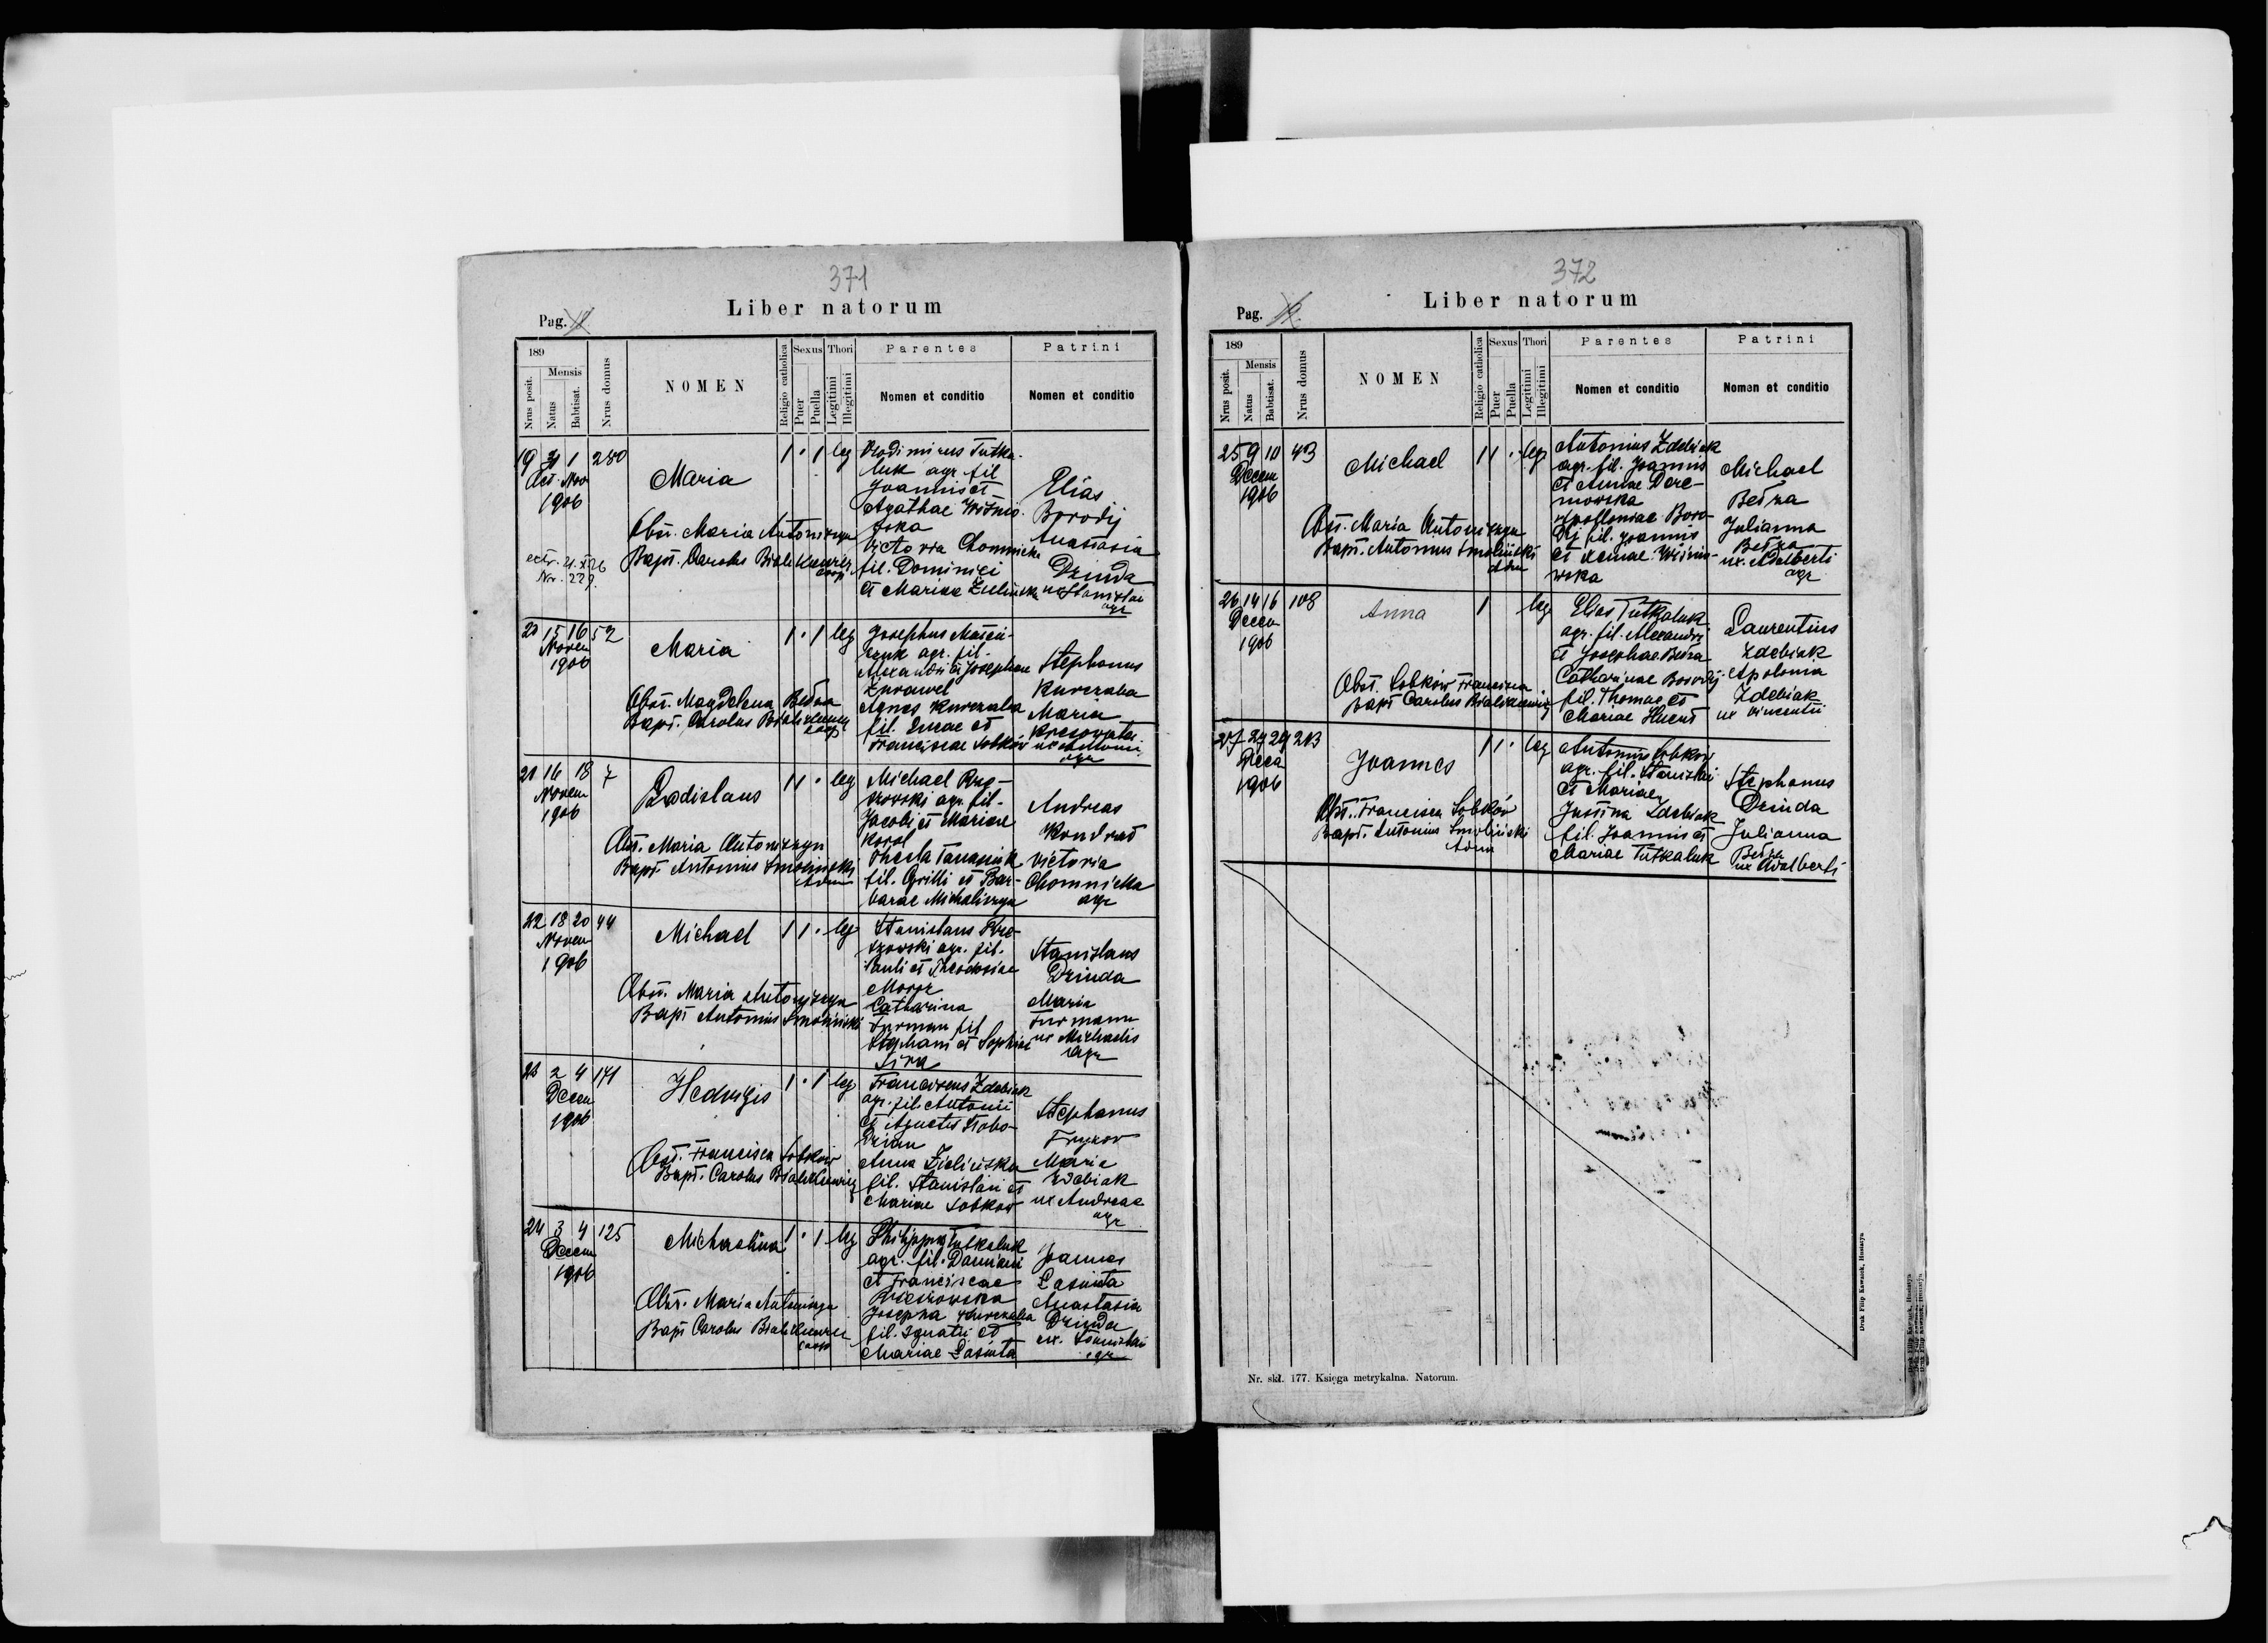 371
Liber natorum
Pag.
189
Mensis
Nrus posit.
Natus
Babtisat.
Nrus domus
NOMEN
Religio catholica
Sexus
Puer
Puella
Thori
Legitimi
Illegitimi
Parentes
Nomen et conditio
Patrini
Nomen et conditio
19 31 1 280
Oct. Nov
1906
Maria
1 · 1 leg
Obst. Maria Antoniszyn
Bapt. Carolus Bialikiewicz
coop
Nr. 229.
agr. fil
Joannis et
Agathae
Victoria Chomnicka
fil. Dominici
et Mariae Zielinska
Elias
Borodij
Anastasia
Dzinda
ux Stanislai
agr
20 15 16 52
Novem
1906
Maria
1 · 1 leg
Obst. Magdalena Betza
Bapt. Carolus
coop
Josephus
agr. fil.
Alexandri et Josephae
Zurawel
Agnes Kurczaba
fil. Lucae et
Franciscae Sobków
Stephanus
Kurczaba
Maria
ux Antonii
agr
21 16 18 7
Novem
1906
Ladislaus
1 1 · leg
Obst. Maria Antoniszyn
Bapt. Antonius Smoliński
Adm
Michael
agr. fil.
Jacobi et Mariae
Korol
Thecla Tanasiuk
fil. Grilli et Bar-
barae Michaliszyn
Andreas
Kondrat
Victoria
Chomnicka
agr
22 18 20 44
Novem
1906
Michael
1 1 · leg
Obst. Maria Antoniszyn
Bapt Antonius Smoliński
Stanislaus
agr. fil.
Pauli et Theodosiae
Catharina
Furman fil
Stephani et Sophiae
Stanislaus
Dzinda
Maria
Furmann
ux Michaelis
agr
23 2 4 171
Decem
1906
Hedvigis
1 · 1 leg
Obst. Francisca Sobków
Bapt. Carolus Bialikiewicz
Franciscus Zdebiak
agr. fil. Antonii
et Agnetis Stobo-
dzian
Anna Zielińska
fil. Stanislai et
Mariae Sobkow
Stephanus
Maria
Zdebiak
ux Andreae
agr
24 3 4 125
Decem
1906
Michaelina
1 · 1 leg
Obst. Maria Antoniszyn
Bapt Carolus Bialikiewicz
coop
Philippus Tutkaluk
agr. fil. Damiani
et Franciscae
Josepha Kurczaba
fil. Ignatii et
Mariae Lasuita
Joannes
Lasuita
Anastasia
Dzinda
ux. Stanislai
agr
372
Liber natorum
Pag. 12.
189
Mensis
Nrus posit.
Natus
Babtisat.
Nrus domus
NOMEN
Religio catholica
Sexus
Puer
Puella
Thori
Legitimi
Illegitimi
Parentes
Nomen et conditio
Patrini
Nomen et conditio
25 9 10 43
Decem
1906
Michael
1 1 · leg
Obst. Maria Antoniszyn
Bapt. Antonius Smoliński
Adm
Antonius Zdebiak
agr. fil. Joannis
et Annae Dere-
mowska
Apolloniae Boro-
dij fil. Joannis
et
wska
Michael
Betza
Julianna
Betza
ux. Adalberti
agr
26 14 16 108
Decem
1906
Anna
1 leg
Obst. Sobków Francisca
Bapt Carolus Bialikiewicz
Elias Tutkaluk
agr. fil. Alexandri
et Josephae Betza
Catharinae Borodij
fil. Thomae et
Mariae
Laurentius
Zdebiak
Apolonia
Zdebiak
ux Vincentii
27 24 213
1906
Joannes
1 1 · leg
Obst. Francisca Sobków
Bapt. Antonius Smoliński
Adm
Antonius Sobków
agr. fil. Stanislai
et Mariae
Justina Zdebiak
fil. Joannis et
Mariae Tutkaluk
Stephanus
Dzinda
Julianna
Betza
ux Adalberti
Druk Filip Kawasek, Husiatyn
Nr. skł. 177. Księga metrykalna. Natorum.